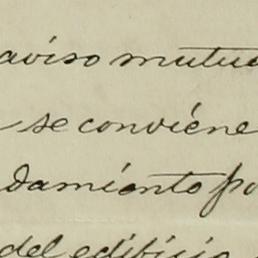 aviso mutuo
se conviéne
damiento po
del edificio